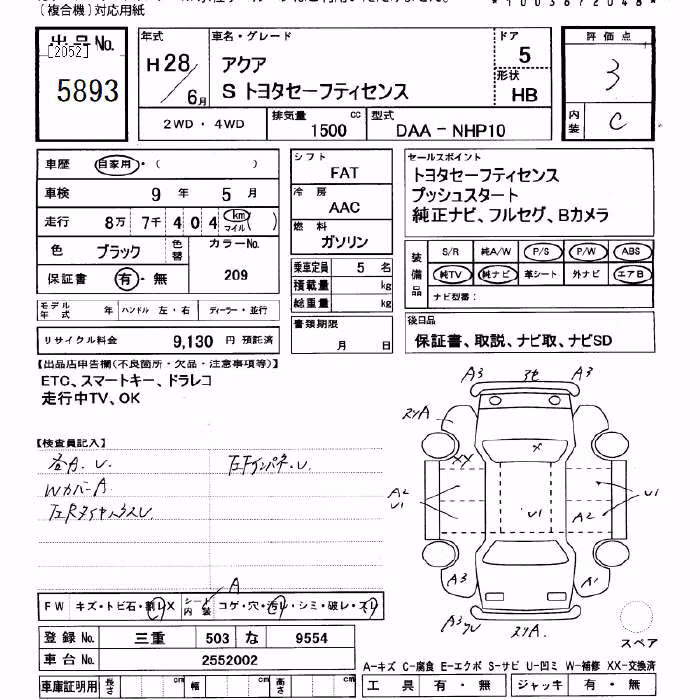 (複合機)対応用紙
*1003672048*
出品No.
[2052]
5893
年式
H28
6月
車名・グレード
アクア
S トヨタセーフティセンス
ドア
5
形状
HB
評価点
3
内装
C
2WD・4WD
排気量
1500
cc
型式
DAA-NHP10
車歴
自家用・( )
車検
9年 5月
走行
8万 7千 4 0 4 km
マイル
色
ブラック
色替
カラーNo.
209
保証書
有・無
モデル年式
年
ハンドル 左・右
ディーラー・並行
リサイクル料金
9,130 円 預託済
シフト
FAT
冷房
AAC
燃料
ガソリン
乗車定員
5 名
積載量
kg
総重量
kg
書類期限
月 日
セールスポイント
トヨタセーフティセンス
プッシュスタート
純正ナビ、フルセグ、Bカメラ
装備品
S/R 純A/W P/S P/W ABS
純TV 純ナビ 革シート 外ナビ エアB
ナビ型番:
後日品
保証書、取説、ナビ取、ナビSD
【出品店申告欄(不良箇所・欠品・注意事項等)】
ETC、スマートキー、ドラレコ
走行中TV、OK
【検査員記入】
各A.U.
WカバーA
左Fインパネ.U.
FW キズ・トビ石・割レX
シート内装
コゲ・穴・汚レ・シミ・破レ・スレ
A
A3
A3
A2
U1
XX
X
U1
A2
U1
A3
A1
スペア
登録No.
三重 503 な 9554
車台No.
2552002
車庫証明用
長さ cm
幅 cm
高さ cm
A-キズ C-腐食 E-エクボ S-サビ U-凹ミ W-補修 XX-交換済
工具 有・無
ジャッキ 有・無